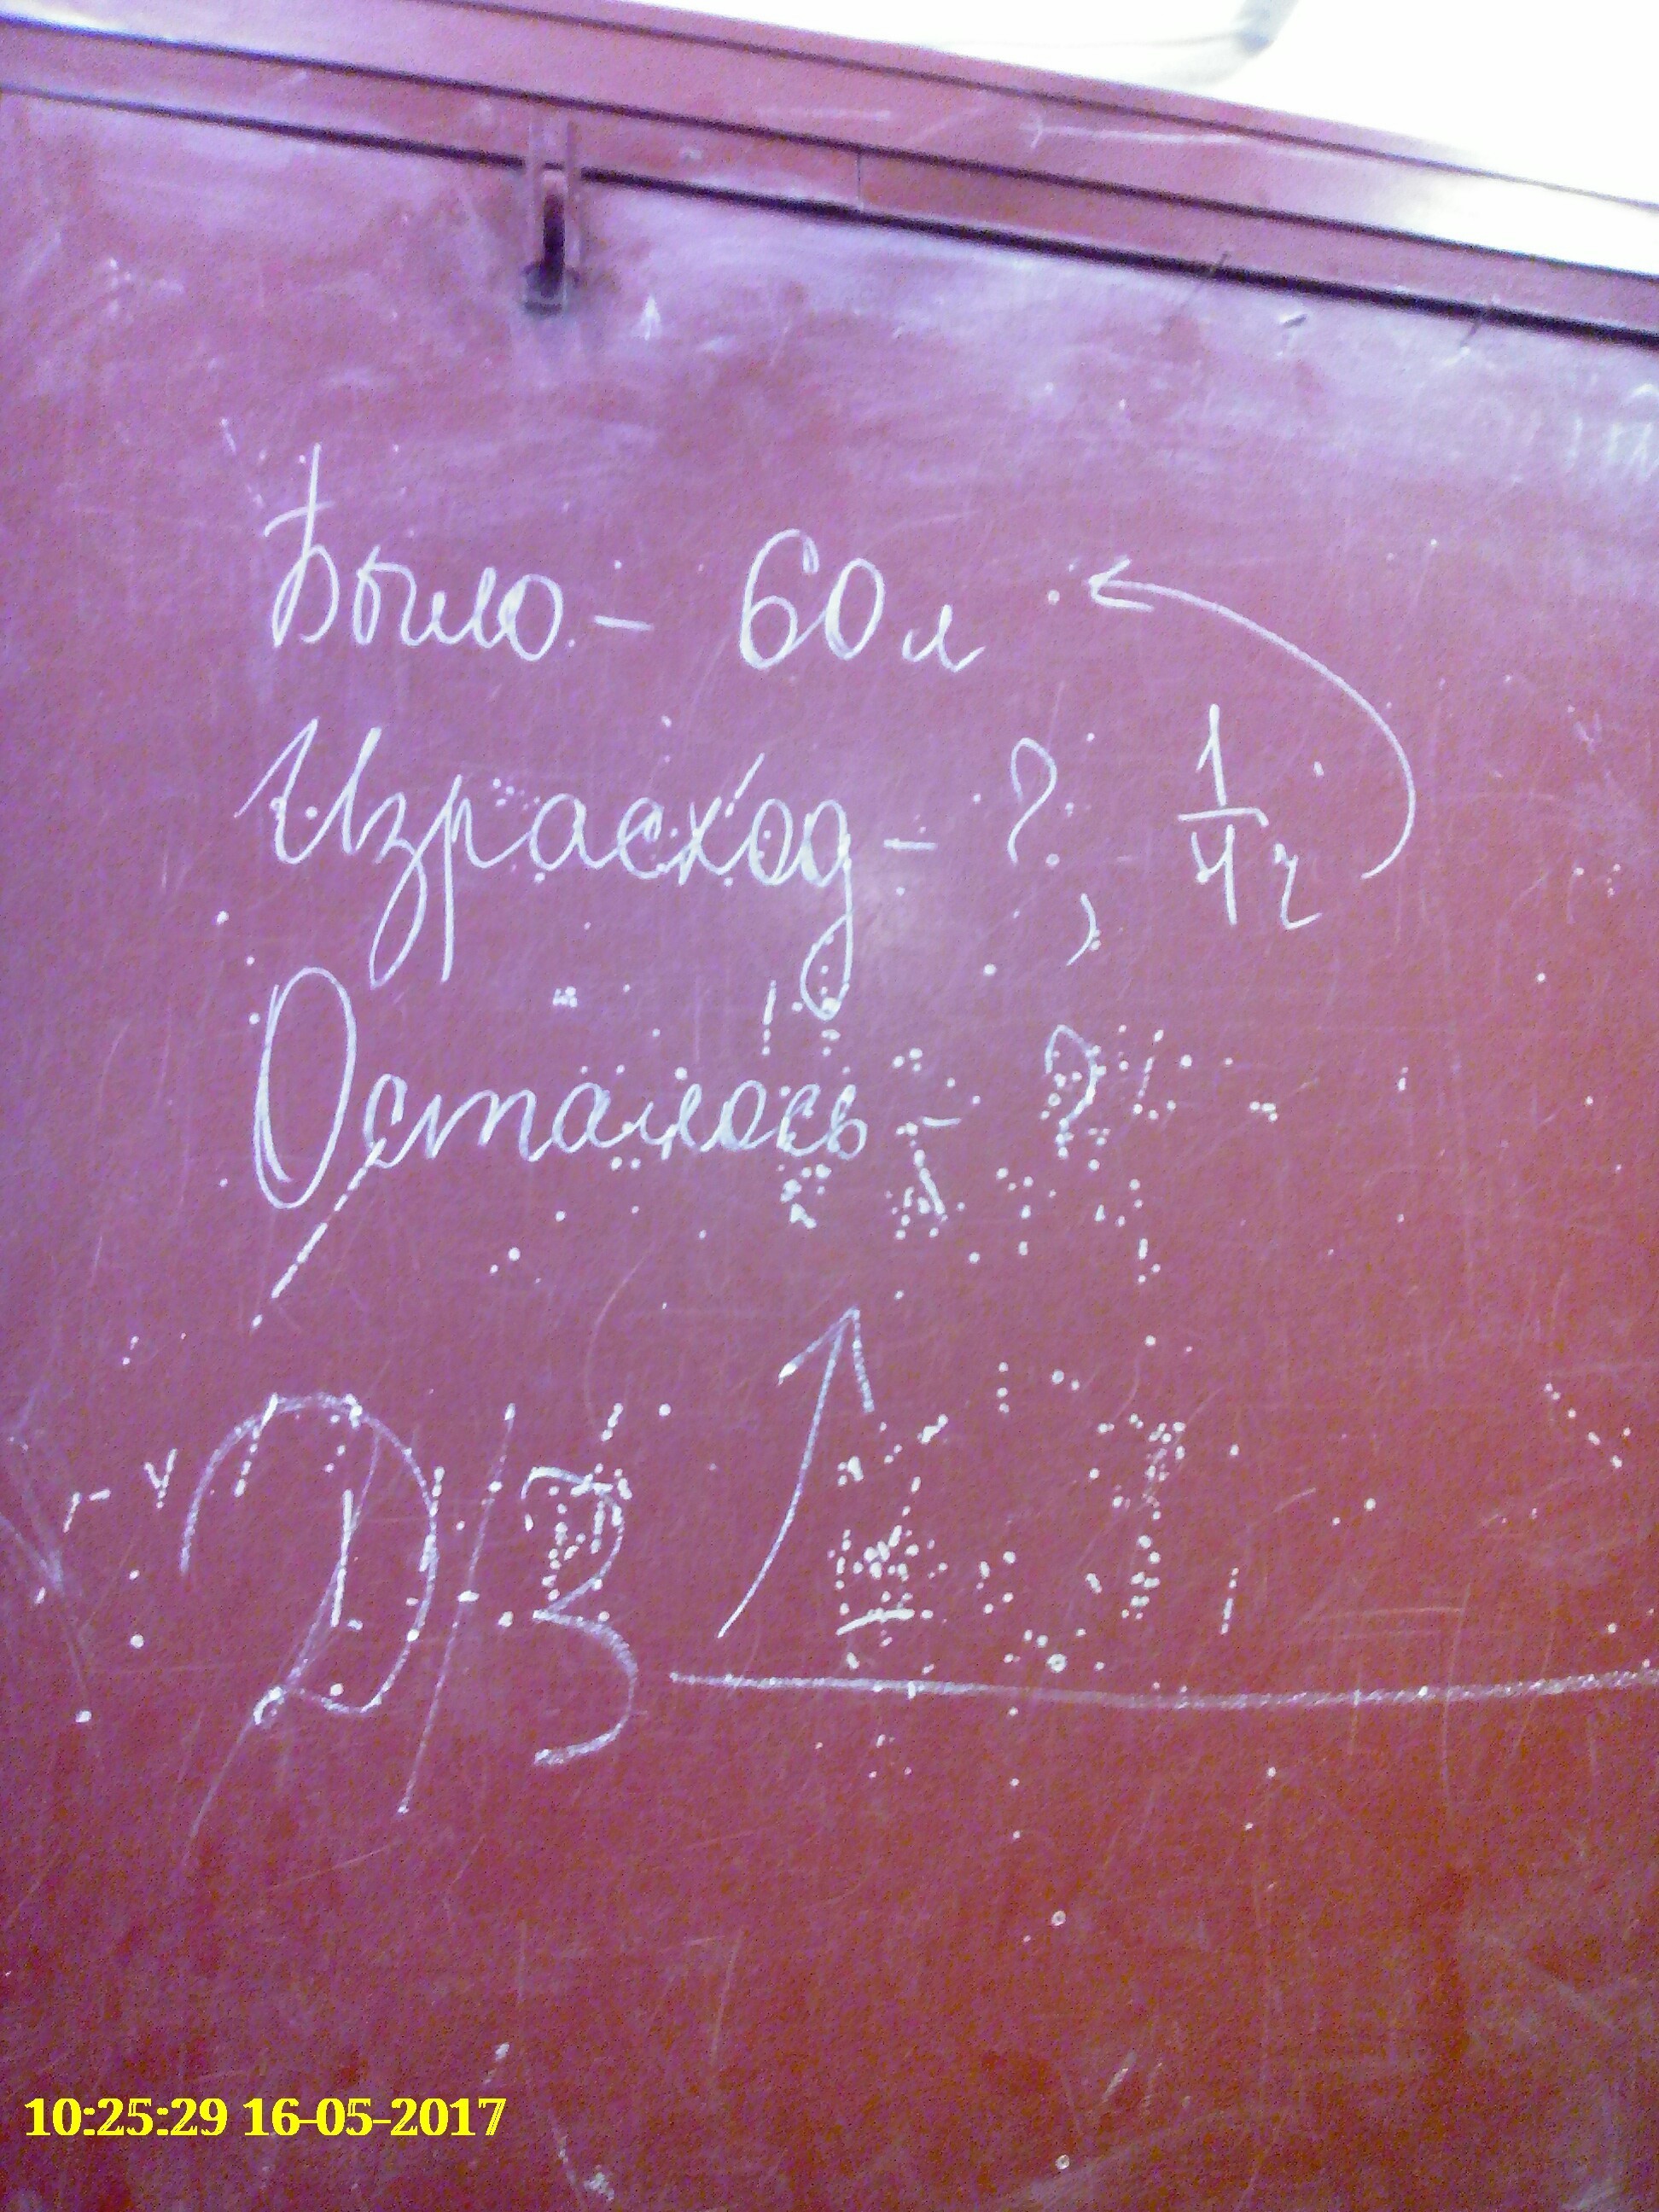 Было - 60 л
Израсход - ?, 1/4 ч
Осталось - ?
Д/З
10:25:29 16-05-2017